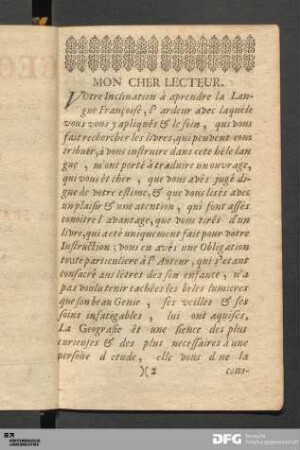 MON CHER LECTEUR.
Vôtre Inclination à aprendre la Lan-
gue Françoise, l'ardeur avec laquêle
vous vous y apliqués & le soin, qui vous
fait rechercher les livres, qui peuvent con-
tribuër, à vous instruire dans cete bèle lan-
gue, m'ont porté à traduire un ouvrage,
qui vous êt cher, que vous avés jugé di-
gne de votre estime, & que vous lisés avec
un plaisir & une atention, qui font assés
conoitre l'avantage, que vous tirés d'un
livre, qui a été uniquement fait pour votre
Instruction; vous en avés une Obligation
toute particuliere à l'Auteur, qui s'etant
consacré aus lètres dés son enfance, n'a
pas voulu tenir cachées les beles lumieres
que son beau Genie, ses veilles & ses
soins infatigables, lui ont aquises,
La Geografie êt une sience des plus
curieuses & des plus necessaires à une
persone d'etude, elle vous done la
)( 2 cons-
DFG Deutsche
Forschungsgemeinschaft